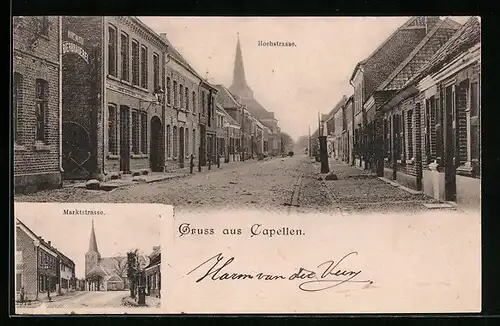 Hochstrasse.
Marktstrasse.
Gruss aus Capellen.
Harm van der Veen